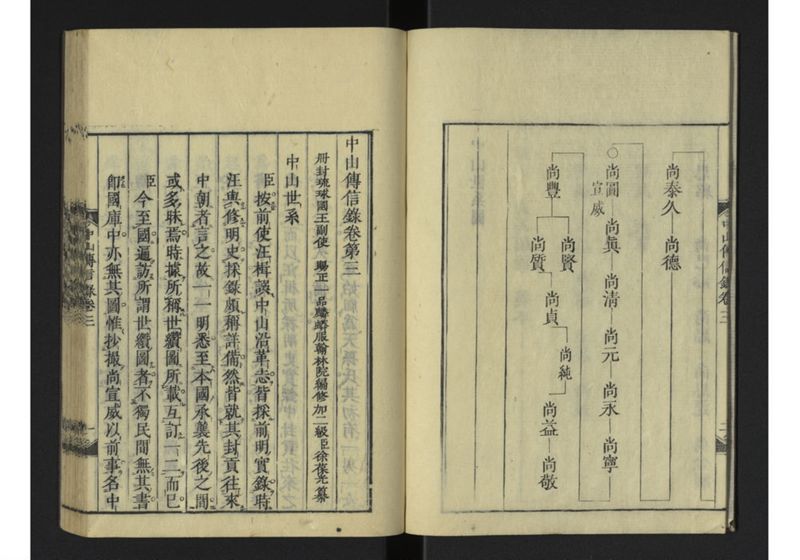 尚泰久 尚德
○尚圓 尚眞 尚清 尚元 尚永 尚寧
宣威
尚豐
尚賢
尚質
尚貞
尚純
尚益 尚敬
中山傳信錄卷三
中山傳信錄卷第三
冊封琉球國王副使 賜正一品麟蟒服翰林院編修加二級臣徐葆光纂
中山世系
臣按前使汪楫談中山沿革志皆採前明實錄時
汪與修明史採錄頗稱詳備然皆就其封貢往來
中朝者言之故一一明悉至本國承襲先後之間
或多昧焉時據所稱世纘圖所載互訂一二而已
臣今至國遍訪所謂世纘圖者不獨民間無其書
卽國庫中亦無其圖惟抄撮尚宣威以前事名中
中山傳信錄卷三
一